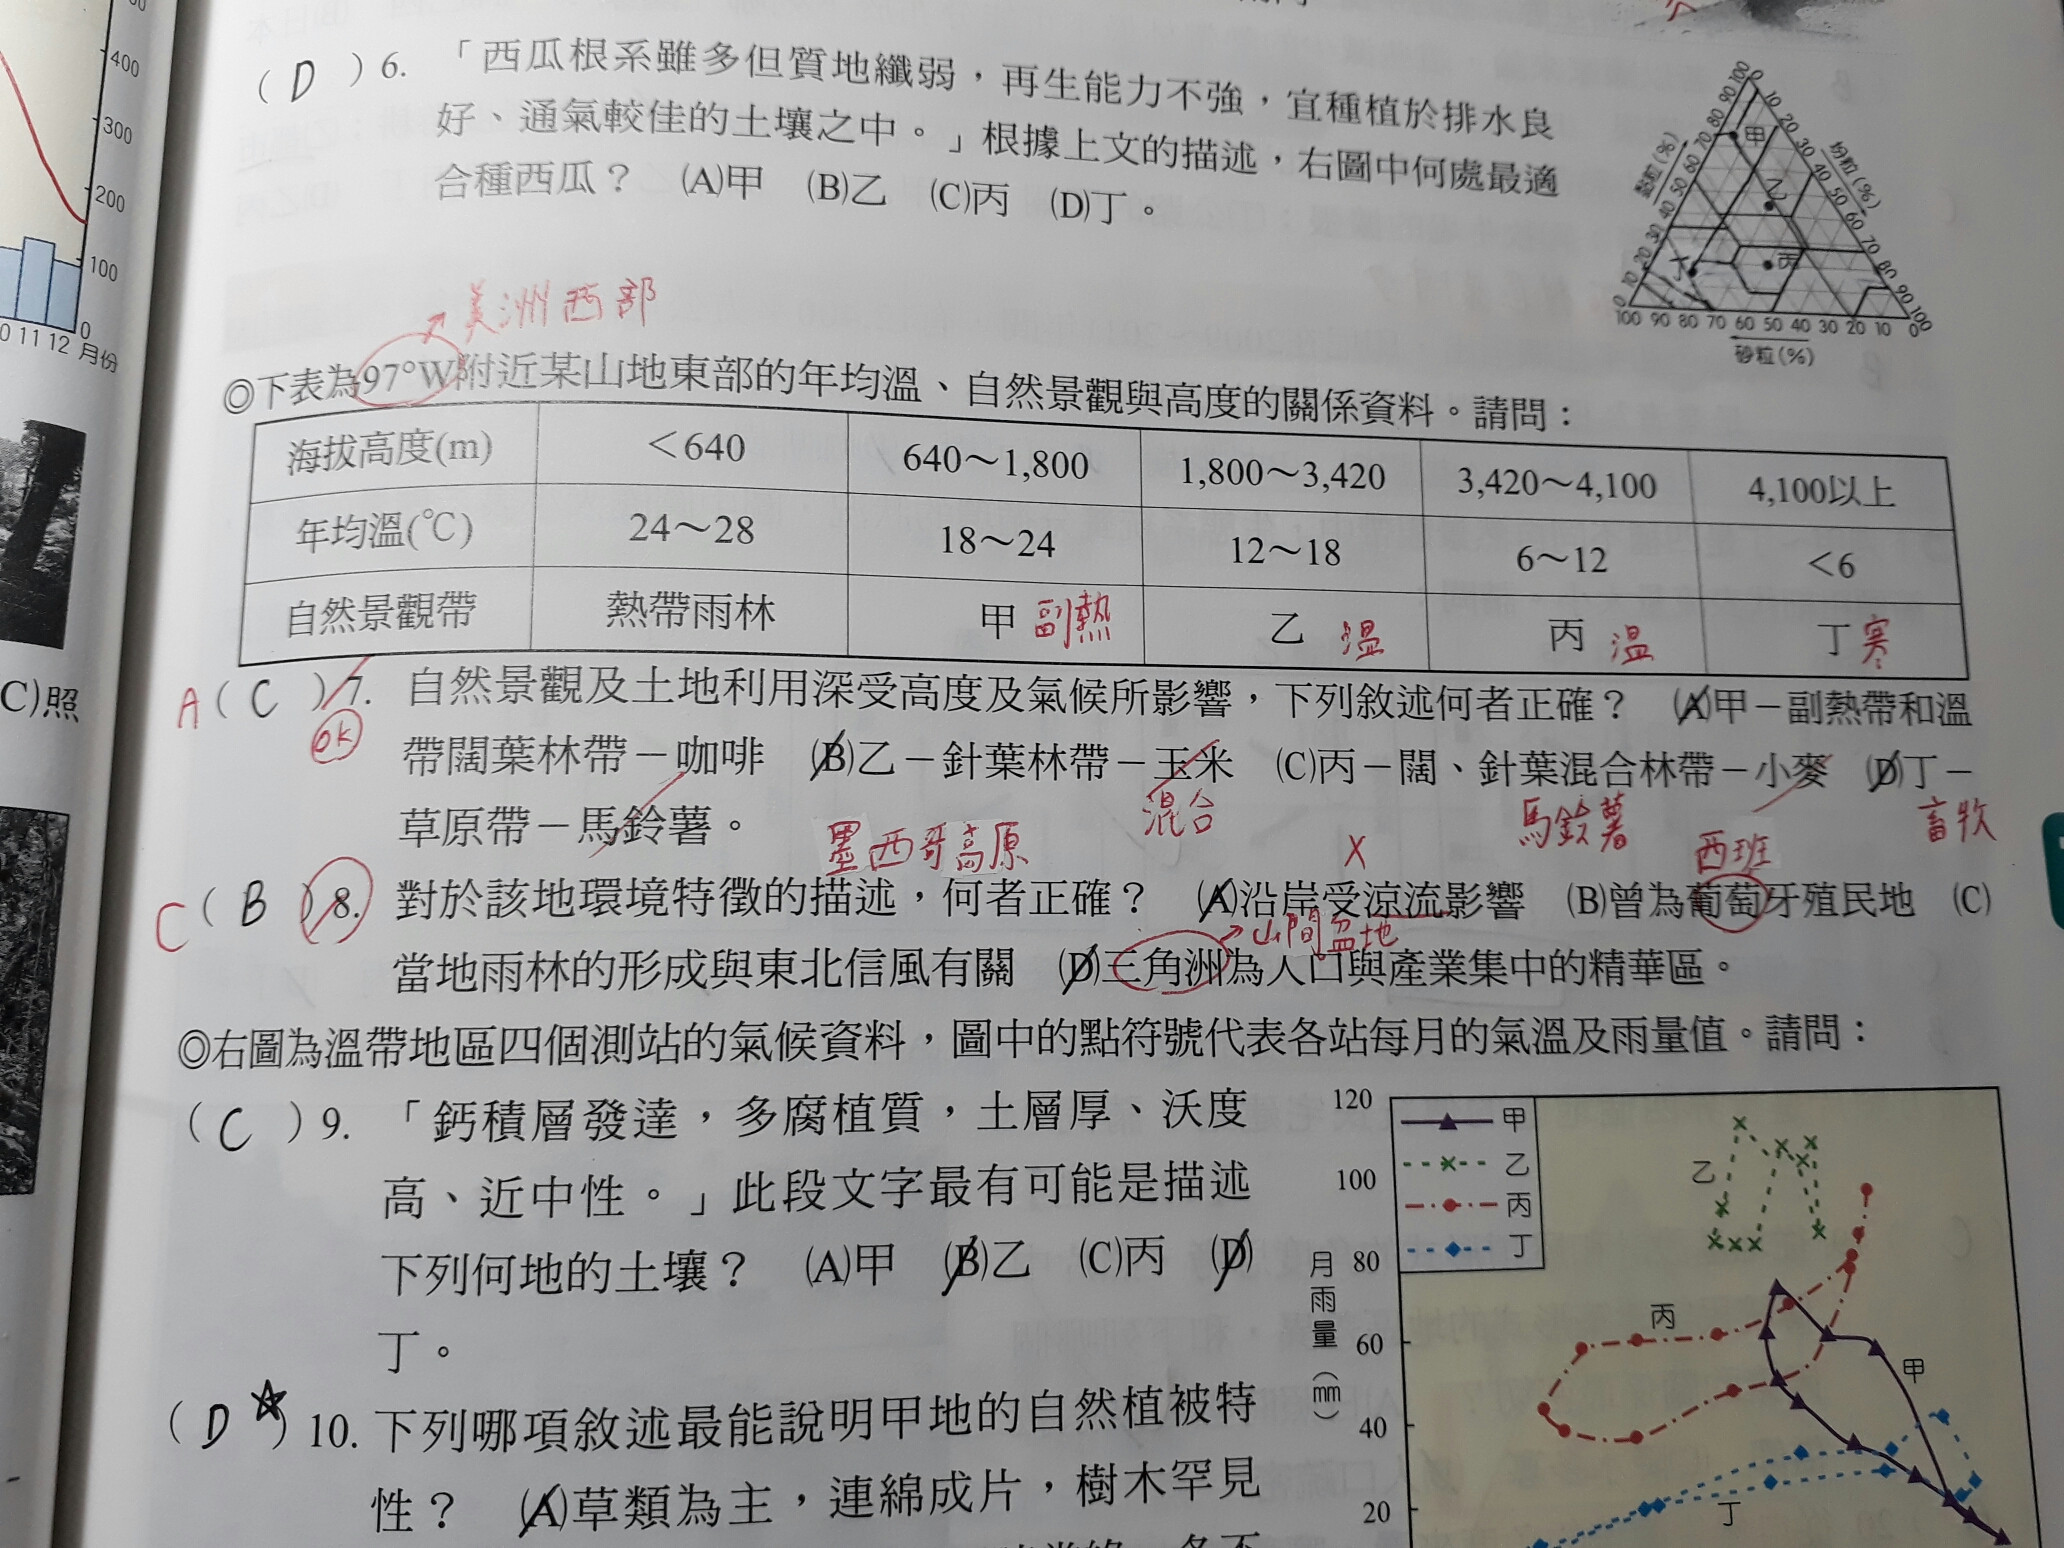 400
300
200
100
0
11 12 月份
C)照
( D ) 6. 「西瓜根系雖多但質地纖弱，再生能力不強，宜種植於排水良
好、通氣較佳的土壤之中。」根據上文的描述，右圖中何處最適
合種西瓜？ (A)甲 (B)乙 (C)丙 (D)丁。
黏粒(%)
坋粒(%)
甲
乙
丙
丁
0 10 20 30 40 50 60 70 80 90 100
0 10 20 30 40 50 60 70 80 90 100
100 90 80 70 60 50 40 30 20 10 0
砂粒(%)
美洲西部
◎下表為97°W附近某山地東部的年均溫、自然景觀與高度的關係資料。請問：
海拔高度(m) ＜640 640～1,800 1,800～3,420 3,420～4,100 4,100以上
年均溫(℃) 24～28 18～24 12～18 6～12 ＜6
自然景觀帶 熱帶雨林 甲 副熱 乙 溫 丙 溫 丁 寒
A ( C ) 7. 自然景觀及土地利用深受高度及氣候所影響，下列敘述何者正確？ (A)甲－副熱帶和溫
OK
帶闊葉林帶－咖啡 (B)乙－針葉林帶－玉米 (C)丙－闊、針葉混合林帶－小麥 (D)丁－
混合 馬鈴薯 畜牧
草原帶－馬鈴薯。
墨西哥高原 X 西班
C ( B ) 8. 對於該地環境特徵的描述，何者正確？ (A)沿岸受涼流影響 (B)曾為葡萄牙殖民地 (C)
山間盆地
當地雨林的形成與東北信風有關 (D)三角洲為人口與產業集中的精華區。
◎右圖為溫帶地區四個測站的氣候資料，圖中的點符號代表各站每月的氣溫及雨量值。請問：
( C ) 9. 「鈣積層發達，多腐植質，土層厚、沃度
高、近中性。」此段文字最有可能是描述
下列何地的土壤？ (A)甲 (B)乙 (C)丙 (D)
丁。
( D ☆) 10. 下列哪項敘述最能說明甲地的自然植被特
性？ (A)草類為主，連綿成片，樹木罕見
120
100
80
60
40
20
月雨量(mm)
甲
乙
丙
丁
乙
丙
甲
丁